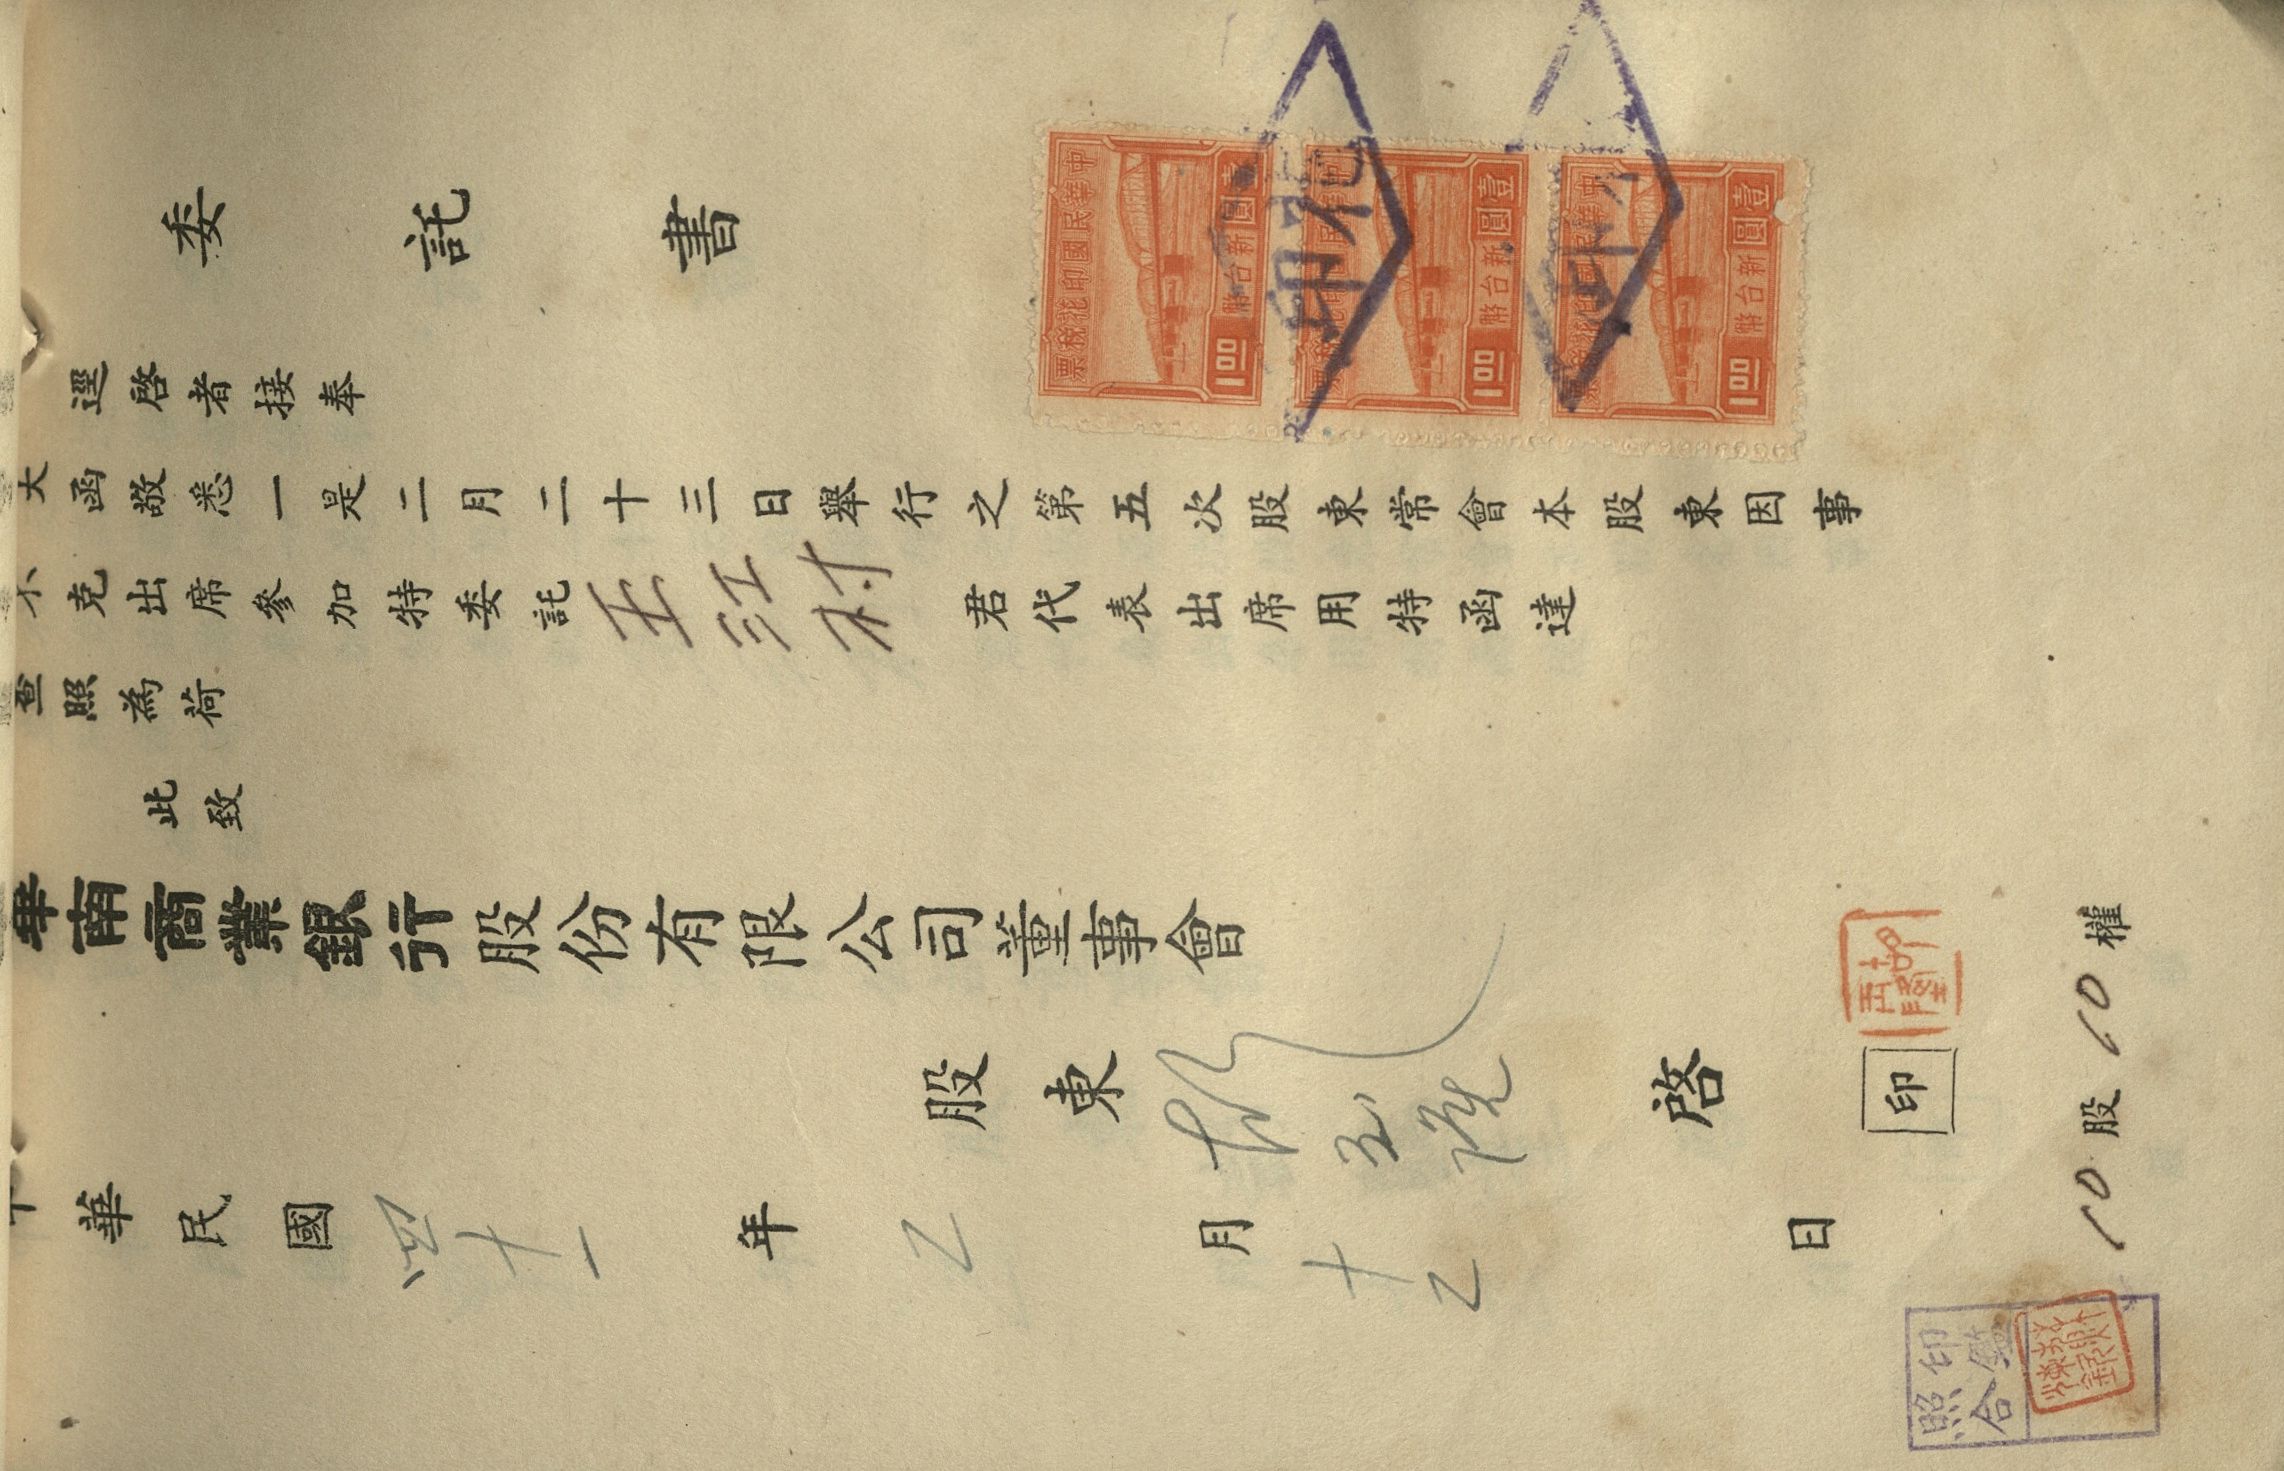 委託書
逕啓者接奉
大函敬悉一是二月二十三日舉行之第五次股東常會本股東因事
不克出席參加特委託王江村君代表出席用特函達
查照為荷
此致
華南商業銀行股份有限公司董事會
股東 玉 啓 印
中華民國四十一年乙月十乙日
10股10權
中華民國印花稅票
壹圓
新台幣
1.00
中華民國印花稅票
壹圓
新台幣
1.00
中華民國印花稅票
壹圓
新台幣
1.00
印花
印鑑
照合